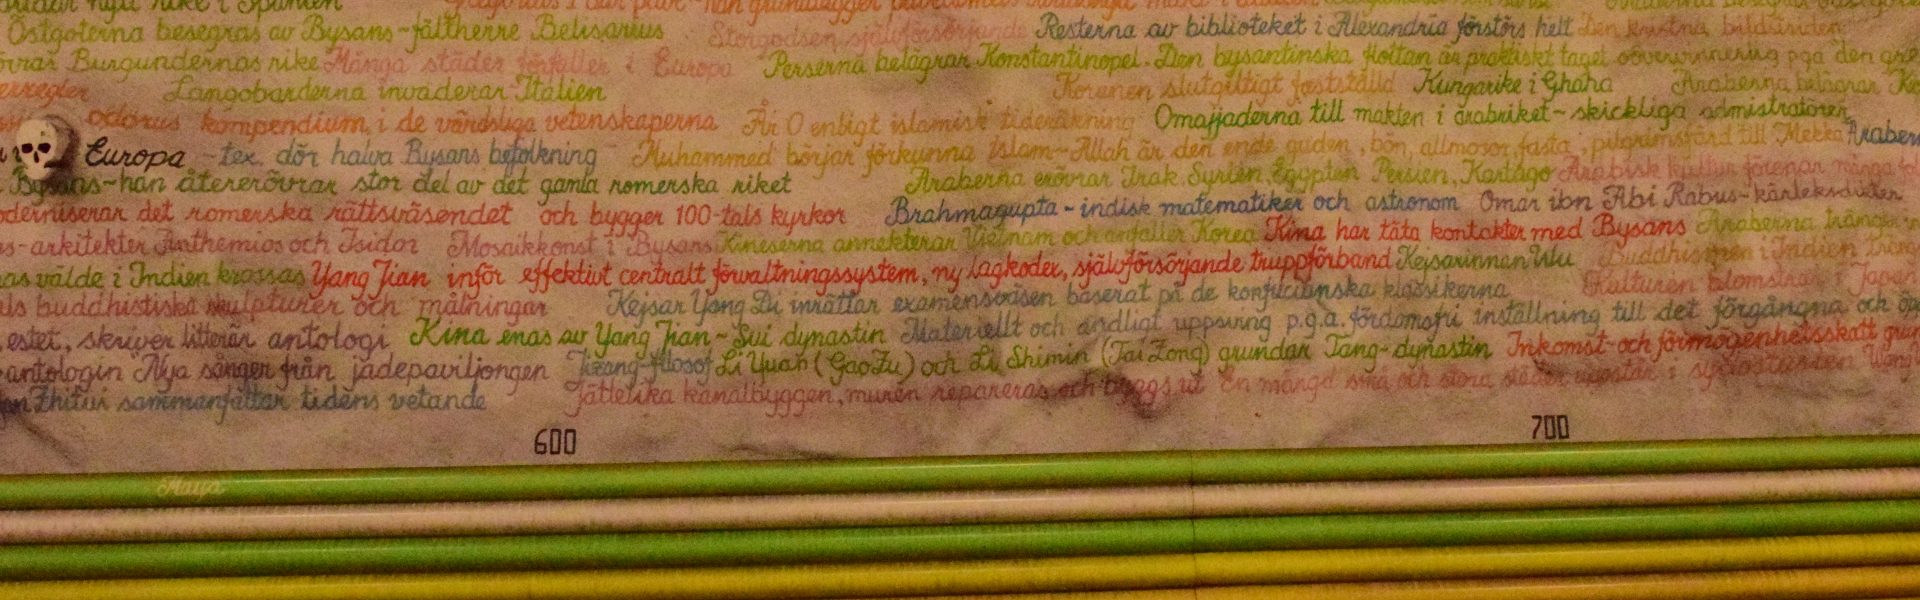 nya rike i Spanien
Östgoterna besegras av Bysans-fältherre Belisarius Storgodsen självförsörjande Resterna av biblioteket i Alexandria förstörs helt Den kristna bildstriden
Burgundernas rike Många städer förfaller i Europa Perserna belägrar Konstantinopel. Den bysantinska flottan är praktiskt taget oövervinnerlig pga den
Langobarderna invaderar Italien Koranen slutgiltigt fastställd Kungarike i Ghana Araberna belägrar
kompendium i de världsliga vetenskaperna År 0 enligt islamisk tideräkning Omajjaderna till makten i arabriket-skickliga admistratörer
Europa - tex. dör halva Bysans befolkning Muhammed börjar förkunna islam-Allah är den ende guden, bön, allmosor, fasta, pilgrimsfärd till Mekka
Bysans-han återerövrar stor del av det gamla romerska riket Araberna erövrar Irak, Syrien, Egypten Persien, Kartago Arabisk kultur förenar många
det romerska rättsväsendet och bygger 100-tals kyrkor Brahmagupta - indisk matematiker och astronom Omar ibn Abi Rabus-kärleksdikter
arkitekter Anthemios och Isidor Mosaikkonst i Bysans Kineserna annekterar Vietnam och anfaller Korea Kina har täta kontakter med Bysans Araberna
välde i Indien krossas Yang Jian inför effektivt centralt förvaltningssystem, ny lagkoder, självförsörjande truppförband Kejsarinnan Wu Buddhismen i Indien
buddhistiska skulpturer och målningar Kejsar Yang Di inrättar examensväsen baserat på de konfucianska klassikerna Kulturen blomstrar i Japan
estet, skriver litterär antologi Kina enas av Yang Jian-Sui dynastin Materiellt och andligt uppsving p.g.a. fördomsfri inställning till det förgångna och
antologin Nya sånger från jadepaviljongen filosof Li Yuan (GaoZu) och Li Shimin (Tai Zong) grundar Tang-dynastin Inkomst-och förmögenhetsskatt
sammanfattar tidens vetande Jättelika kanalbyggen, muren repareras och byggs ut En mängd små och stora städer uppstår i
600 700
Maya